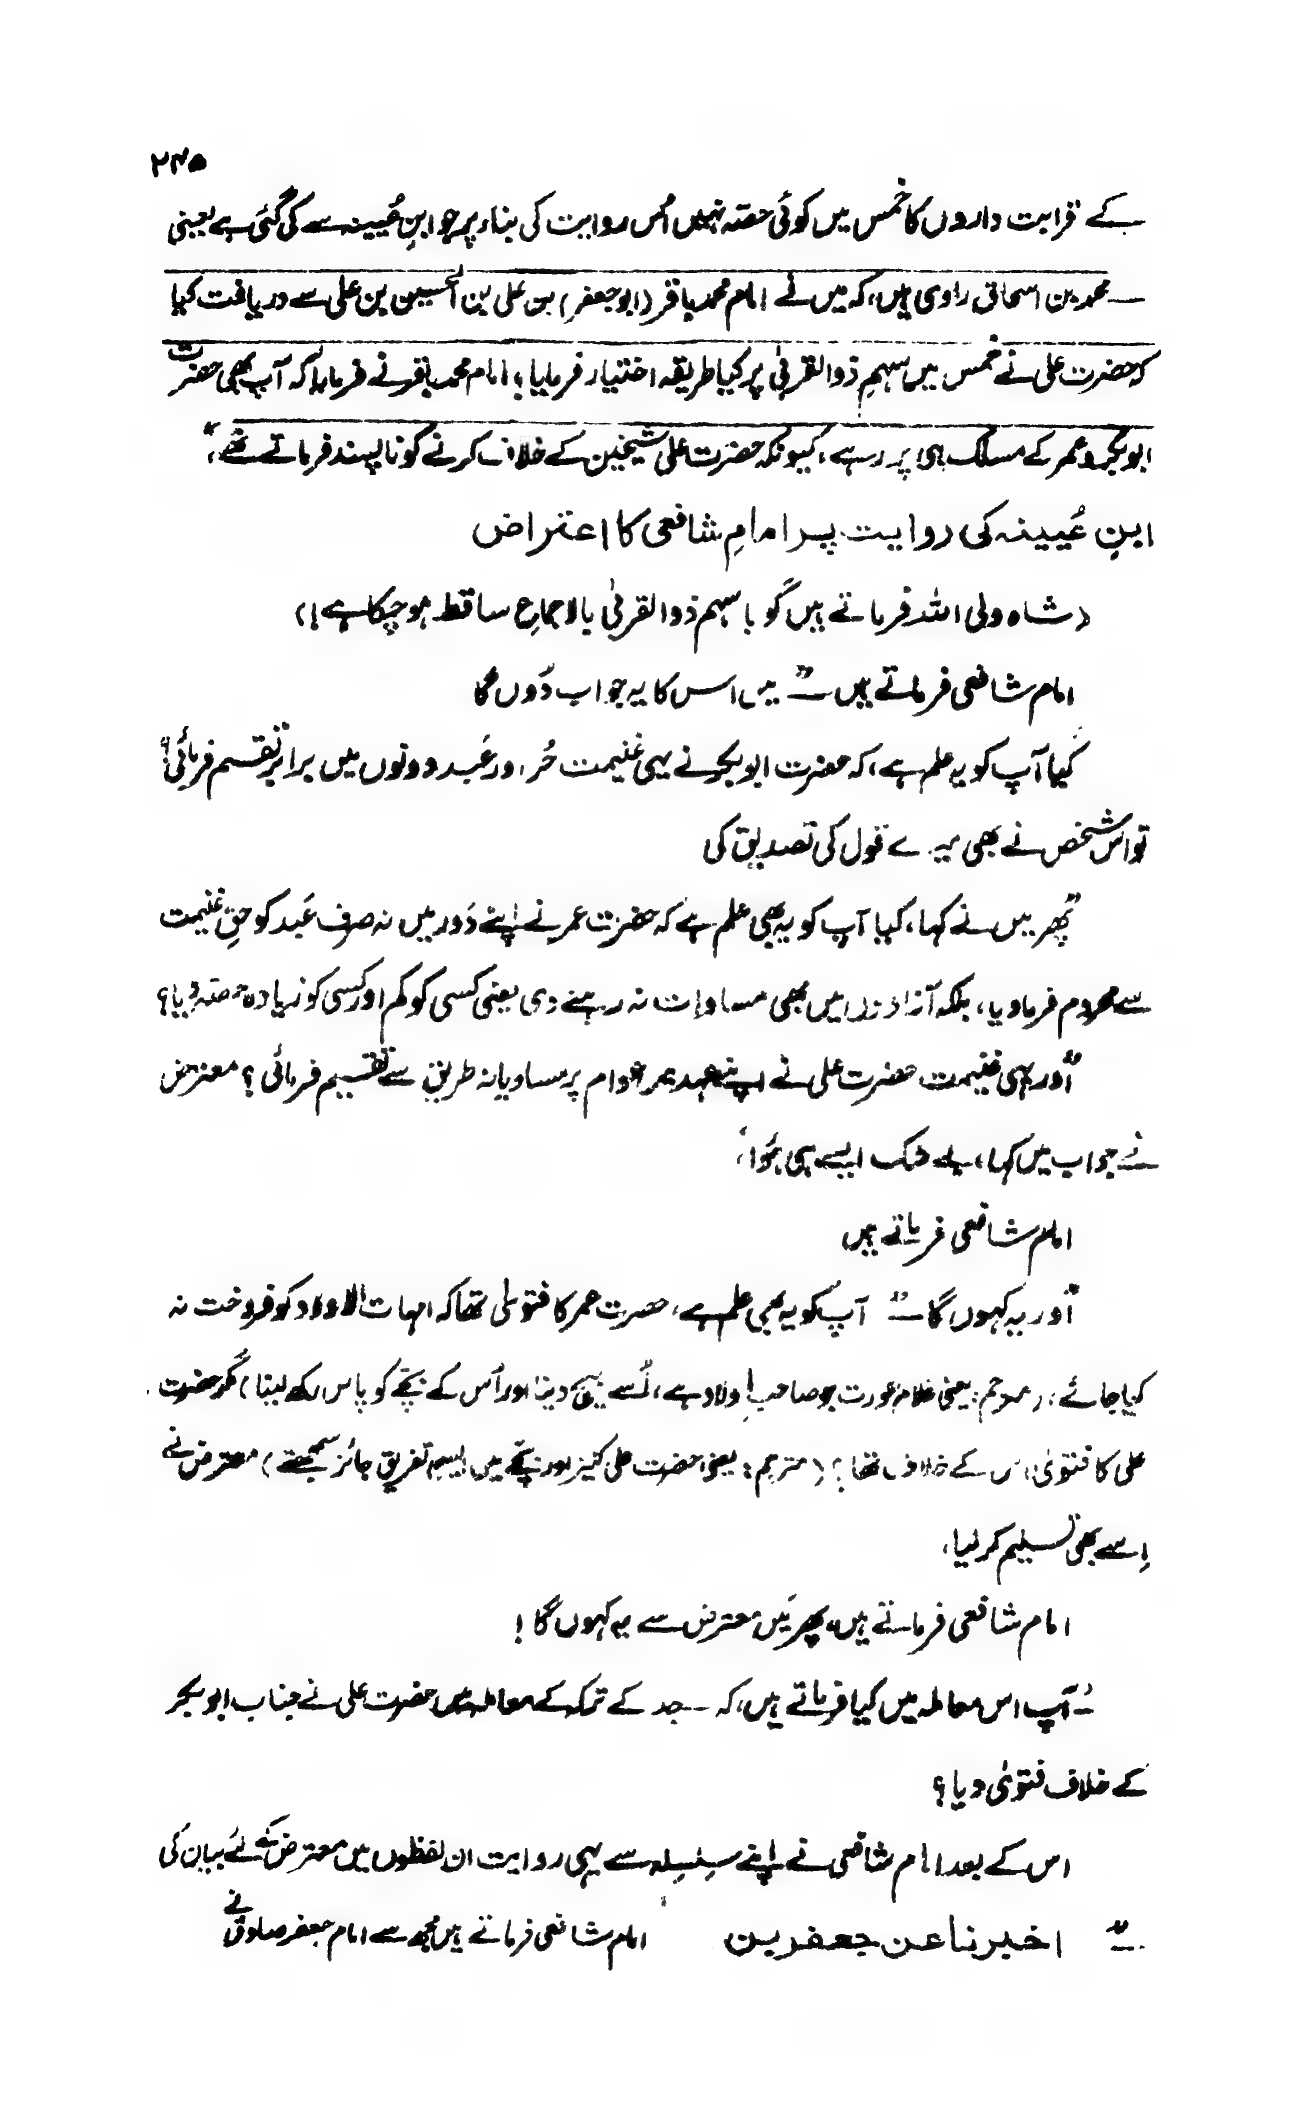 ۲۴۵
کے قرابت داروں کا خمس میں کوئی حصّہ نہیں اُس روایت کی بناء پر جو ابنِ عُیینہ سے کی گئی ہے یعنی
— محمد بن اسحاق راوی ہیں، کہ میں نے امام محمد باقر (ابو جعفر) بن علی بن الحسین بن علی سے دریافت کیا
کہ حضرت علی نے خمس میں سہمِ ذوالقربیٰ پر کیا طریقہ اختیار فرمایا؛ امام محمد باقر نے فرمایا کہ آپ بھی حضرت
ابو بکر و عمر کے مسلک ہی پر رہے، کیونکہ حضرت علی شیخین کے خلاف کرنے کو ناپسند فرماتے تھے،"
ابنِ عُیینہ کی روایت پر امامِ شافعی کا اعتراض
(شاہ ولی اللہ فرماتے ہیں گو یا سہم ذوالقربیٰ بالاجماع ساقط ہو چکا ہے!)
امام شافعی فرماتے ہیں —" میں اس کا یہ جواب دُوں گا
کیا آپ کو یہ علم ہے، کہ حضرت ابو بکر نے یہی غنیمت حُر اور عَبد دونوں میں برابر تقسیم فرمائی؟
تو اس شخص نے بھی میرے قول کی تصدیق کی
"پھر میں نے کہا، کیا آپ کو یہ بھی علم ہے کہ حضرت عمر نے اپنے دَور میں نہ صرف عَبد کو حقِ غنیمت
سے محروم فرما دیا، بلکہ آزادوں میں بھی مساوات نہ رہنے دی یعنی کسی کو کم اور کسی کو زیادہ حصّہ دیا؟
"اور یہی غنیمت حضرت علی نے اپنے عہد میں عوام پر مساویانہ طریق سے تقسیم فرمائی؟ معترض
نے جواب میں کہا، بے شک ایسے ہی ہُوا،
امام شافعی فرماتے ہیں
"اور یہ کہوں گا —" آپ کو یہ بھی علم ہے، حضرت عمر کا فتویٰ تھا کہ امہات الاولاد کو فروخت نہ
کیا جائے، (مترجم: یعنی غلام عورت جو صاحبِ اولاد ہے، اُسے بیچ دینا اور اُس کے بچّے کو پاس رکھ لینا) مگر حضرت
علی کا فتویٰ اس کے خلاف تھا؟ (مترجم: یعنی حضرت علی کنیز اور بچّے میں ایسی تفریق جائز سمجھتے) معترض نے
اِسے بھی تسلیم کر لیا،
امام شافعی فرماتے ہیں، پھر مَیں معترض سے یہ کہوں گا!
"آپ اس معاملہ میں کیا فرماتے ہیں، کہ — جد کے ترکہ کے معاملہ میں حضرت علی نے جناب ابو بکر
کے خلاف فتویٰ دیا؟
اس کے بعد امام شافعی نے اپنے سِلسِلہ سے یہی روایت ان لفظوں میں معترض کے لئے بیان کی
—" اخبرنا عن جعفر بن امام شافعی فرماتے ہیں مجھ سے امام جعفر صادق نے